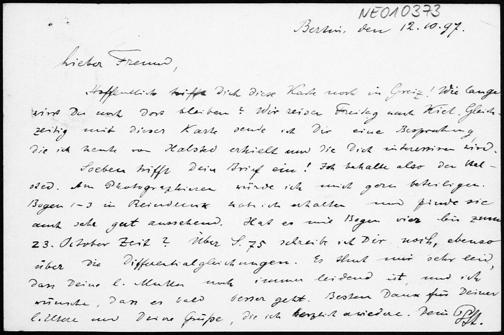 NE010373
Berlin, den 12.10.97.
Lieber Freund,
Hoffentlich trifft Dich diese Karte noch in Greiz! Wie lange
wirst Du noch dort bleiben? Wir reisen Freitag nach Kiel. Gleich-
zeitig mit dieser Karte sende ich Dir eine Besprechung,
die ich heute von Halsted erhielt und die Dich interessieren wird.
Soeben trifft Dein Brief ein! Ich behalte also den Hal-
sted. Am Photographieren würde ich mich gern beteiligen.
Bogen 1-3 in Reindruck habe ich erhalten und finde sie
auch sehr gut aussehend. Hat es mit Bogen vier bis zum
23. October Zeit? Über S. 75 schreibe ich Dir noch, ebenso
über die Differentialgleichungen. Es thut mir sehr leid,
dass Deine l. Mutter noch immer leidend ist, und ich
wünsche, dass es bald besser geht. Besten Dank für Deiner
und Deine Grüße, die ich herzlich erwidre. Dein